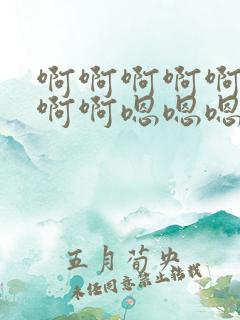 啊啊啊啊啊
啊啊嗯嗯嗯
五月荀央
未经同意禁止转载